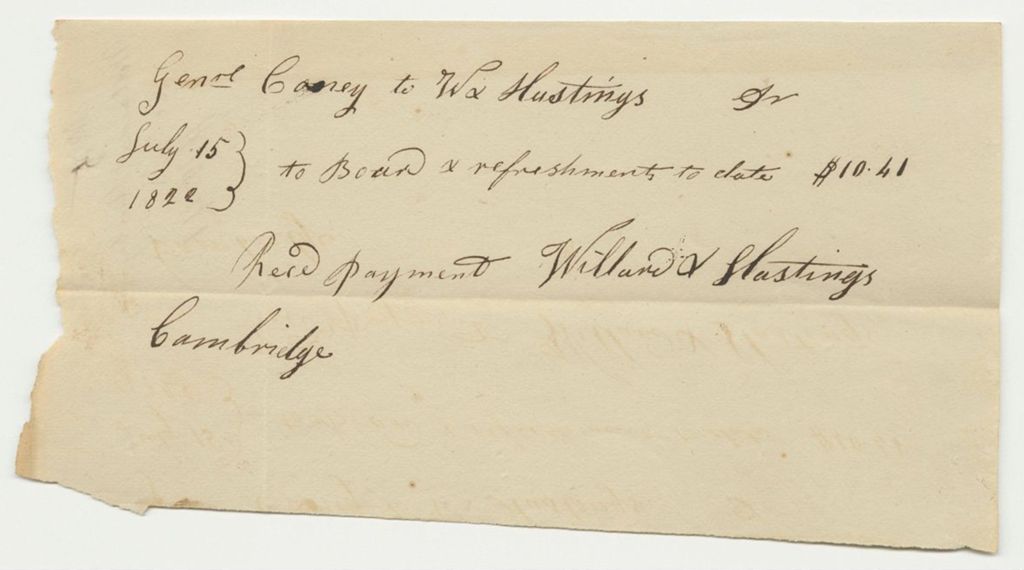 Genrl Coney to W & Hastings Dr
July 15 1822 } to Board & refreshments to date $10.41
Recd payment Willard & Hastings
Cambridge